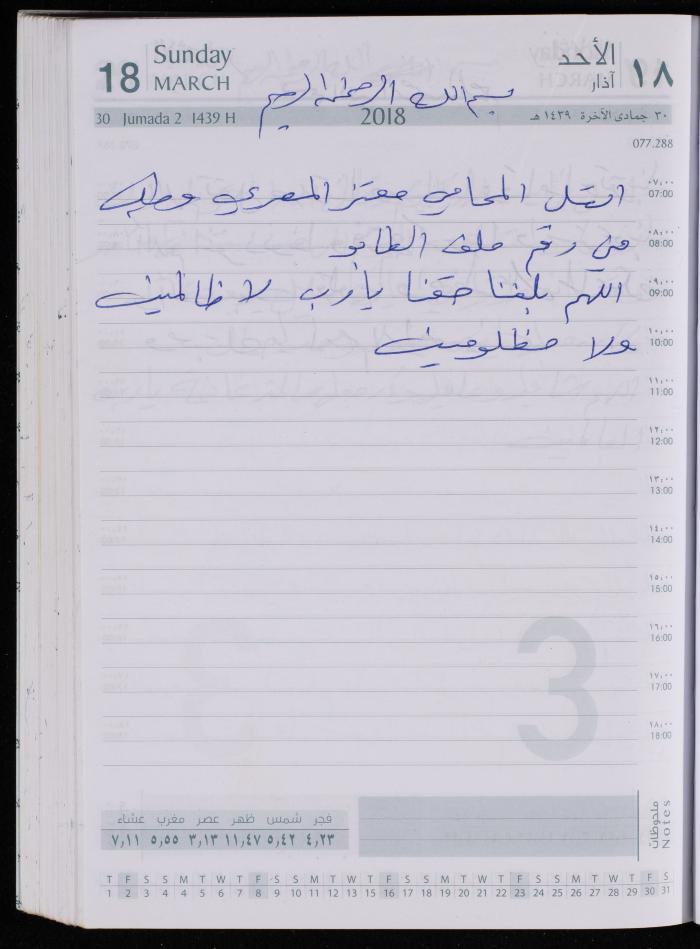 18 Sunday MARCH الأحد آذار ١٨
بسم الله الرحمن الرحيم
30 Jumada 2 1439 H 2018 ٣٠ جمادى الآخرة ١٤٣٩ هـ
077.288
اتصل المحامي معتز المصري وطلب
٠٧,٠٠ 07:00
مني رقم ملف الطابو
٠٨,٠٠ 08:00
اللهم بلغنا حقنا يا رب لا ظالمين
٠٩,٠٠ 09:00
ولا مظلومين
١٠,٠٠ 10:00
١١,٠٠ 11:00
١٢,٠٠ 12:00
١٣,٠٠ 13:00
١٤,٠٠ 14:00
١٥,٠٠ 15:00
١٦,٠٠ 16:00
١٧,٠٠ 17:00
١٨,٠٠ 18:00
3
فجر شمس ظهر عصر مغرب عشاء
٤,٢٣ ٥,٤٢ ١١,٤٧ ٣,١٣ ٥,٥٥ ٧,١١
ملحوظات
Notes
T F S S M T W T F S S M T W T F S S M T W T F S S M T W T F S
1 2 3 4 5 6 7 8 9 10 11 12 13 14 15 16 17 18 19 20 21 22 23 24 25 26 27 28 29 30 31